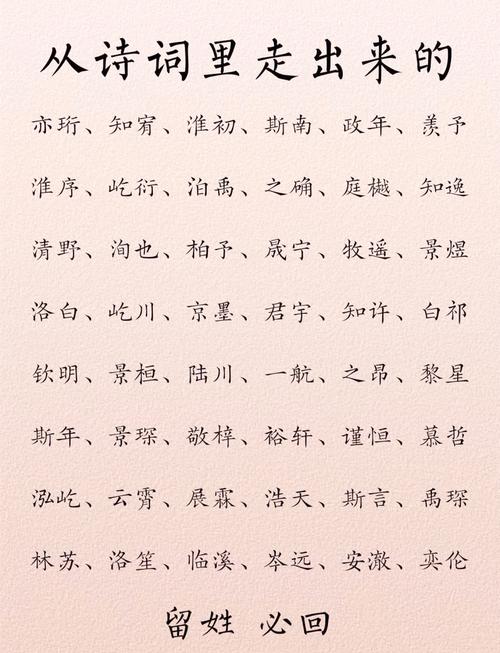 从诗词里走出来的
亦珩、知宥、淮初、斯南、政年、羡予
淮序、屹衍、泊禹、之确、庭樾、知逸
清野、洵也、柏予、晟宁、牧遥、景煜
洛白、屹川、京墨、君宇、知许、白祁
钦明、景桓、陆川、一航、之昂、黎星
斯年、景琛、敬梓、裕轩、谨恒、慕哲
泓屹、云霄、展霖、浩天、斯言、禹琛
林苏、洛笙、临溪、岑远、安澈、奕伦
留姓 必回